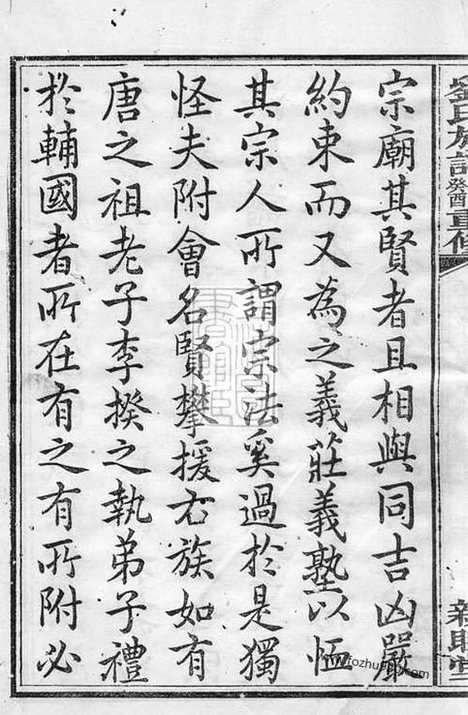 劉氏族譜 癸酉重修
宗廟其賢者且相與同吉凶嚴
約束而又為之義莊義塾以恤
其宗人所謂宗法奚過於是獨
怪夫附會名賢攀援右族如有
唐之祖老子李揆之執弟子禮
於輔國者所在有之有所附必